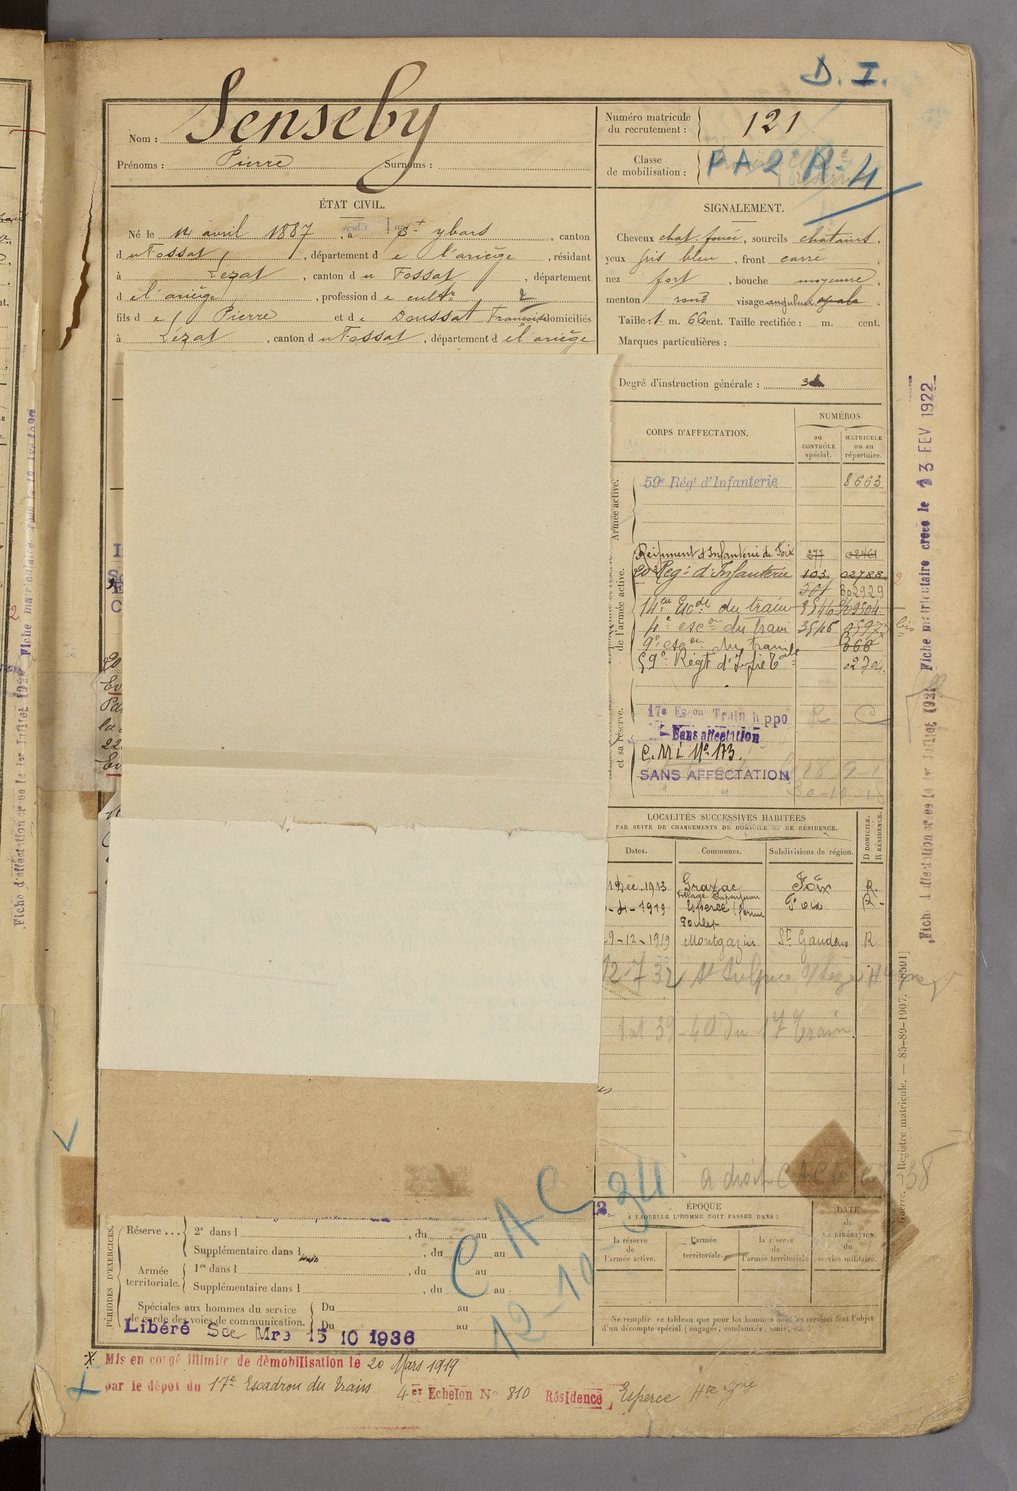 D. I.
Nom : Senseby
Prénoms : Pierre Surnoms :
Numéro matricule du recrutement : 121
Classe de mobilisation : P A 2 R. 4
ÉTAT CIVIL.
Né le avril 1887, à St ybars, canton
du Fossat, département de l'ariège, résidant
à Lezat, canton du Fossat, département
de l'ariège, profession de cultr
fils de Pierre et de Doussat domiciliés
à Lézat, canton du Fossat, département de l'ariège
SIGNALEMENT.
Cheveux chat. foncé, sourcils chatains.
yeux gris bleu, front carré
nez fort, bouche moyenne
menton rond visage angulux ovale.
Taille : 1 m. 66 cent. Taille rectifiée : m. cent.
Marques particulières :
Degré d'instruction générale : 3
CORPS D'AFFECTATION.
NUMÉROS
au CONTRÔLE spécial.
MATRICULE ou au répertoire.
Armée active.
59e Régt d'Infanterie 8663
de l'armée active.
Régiment d'Infanterie de Foix 277
20 Regt d'Infanterie 103 02788
14 du train
4e escon du train 3546
9e escon du train
59e Régt d'Infie 
et sa réserve.
17e Escon Train hippo
Sans affectation
C. M. I. No 173
SANS AFFECTATION
LOCALITÉS SUCCESSIVES HABITÉES
PAR SUITE DE CHANGEMENTS DE DOMICILE OU DE RÉSIDENCE.
Dates.
Communes.
Subdivisions de région.
D DOMICILE. R RÉSIDENCE.
Déc. 1913 Grazac Foix R.
-4-1919 Esperce Foix R.
9-12-1919 Montgazin St Gaudens R
12-7-32 St Sulpice s/Lèze
39-40 du 17 Train
a droit C A C
ÉPOQUE
À LAQUELLE L'HOMME DOIT PASSER DANS :
la réserve de l'armée active.
l'armée territoriale.
la réserve de l'armée territoriale
DATE de LA LIBÉRATION du service militaire.
Ne remplir ce tableau que pour les hommes dont les services font l'objet
d'un décompte spécial (engagés, condamnés, omis, etc.)
PÉRIODES D'EXERCICES.
Réserve ... 2e dans l , du au
Supplémentaire dans l , du au
Armée territoriale. 1re dans l , du au
Supplémentaire dans l , du au
Spéciales aux hommes du service Du au
de garde des voies de communication. Du au
C A C
12-10-34
Libéré Sce Mre 15 10 1936
Mis en congé illimité de démobilisation le 20 Mars 1919
par le dépôt du 17e Escadron du Train 4e Echelon No 810 Résidence Esperce Hte Gne
Fiche matriculaire créée le 13 FEV 1922
Registre matricule. — 85-89-1907. [8501]